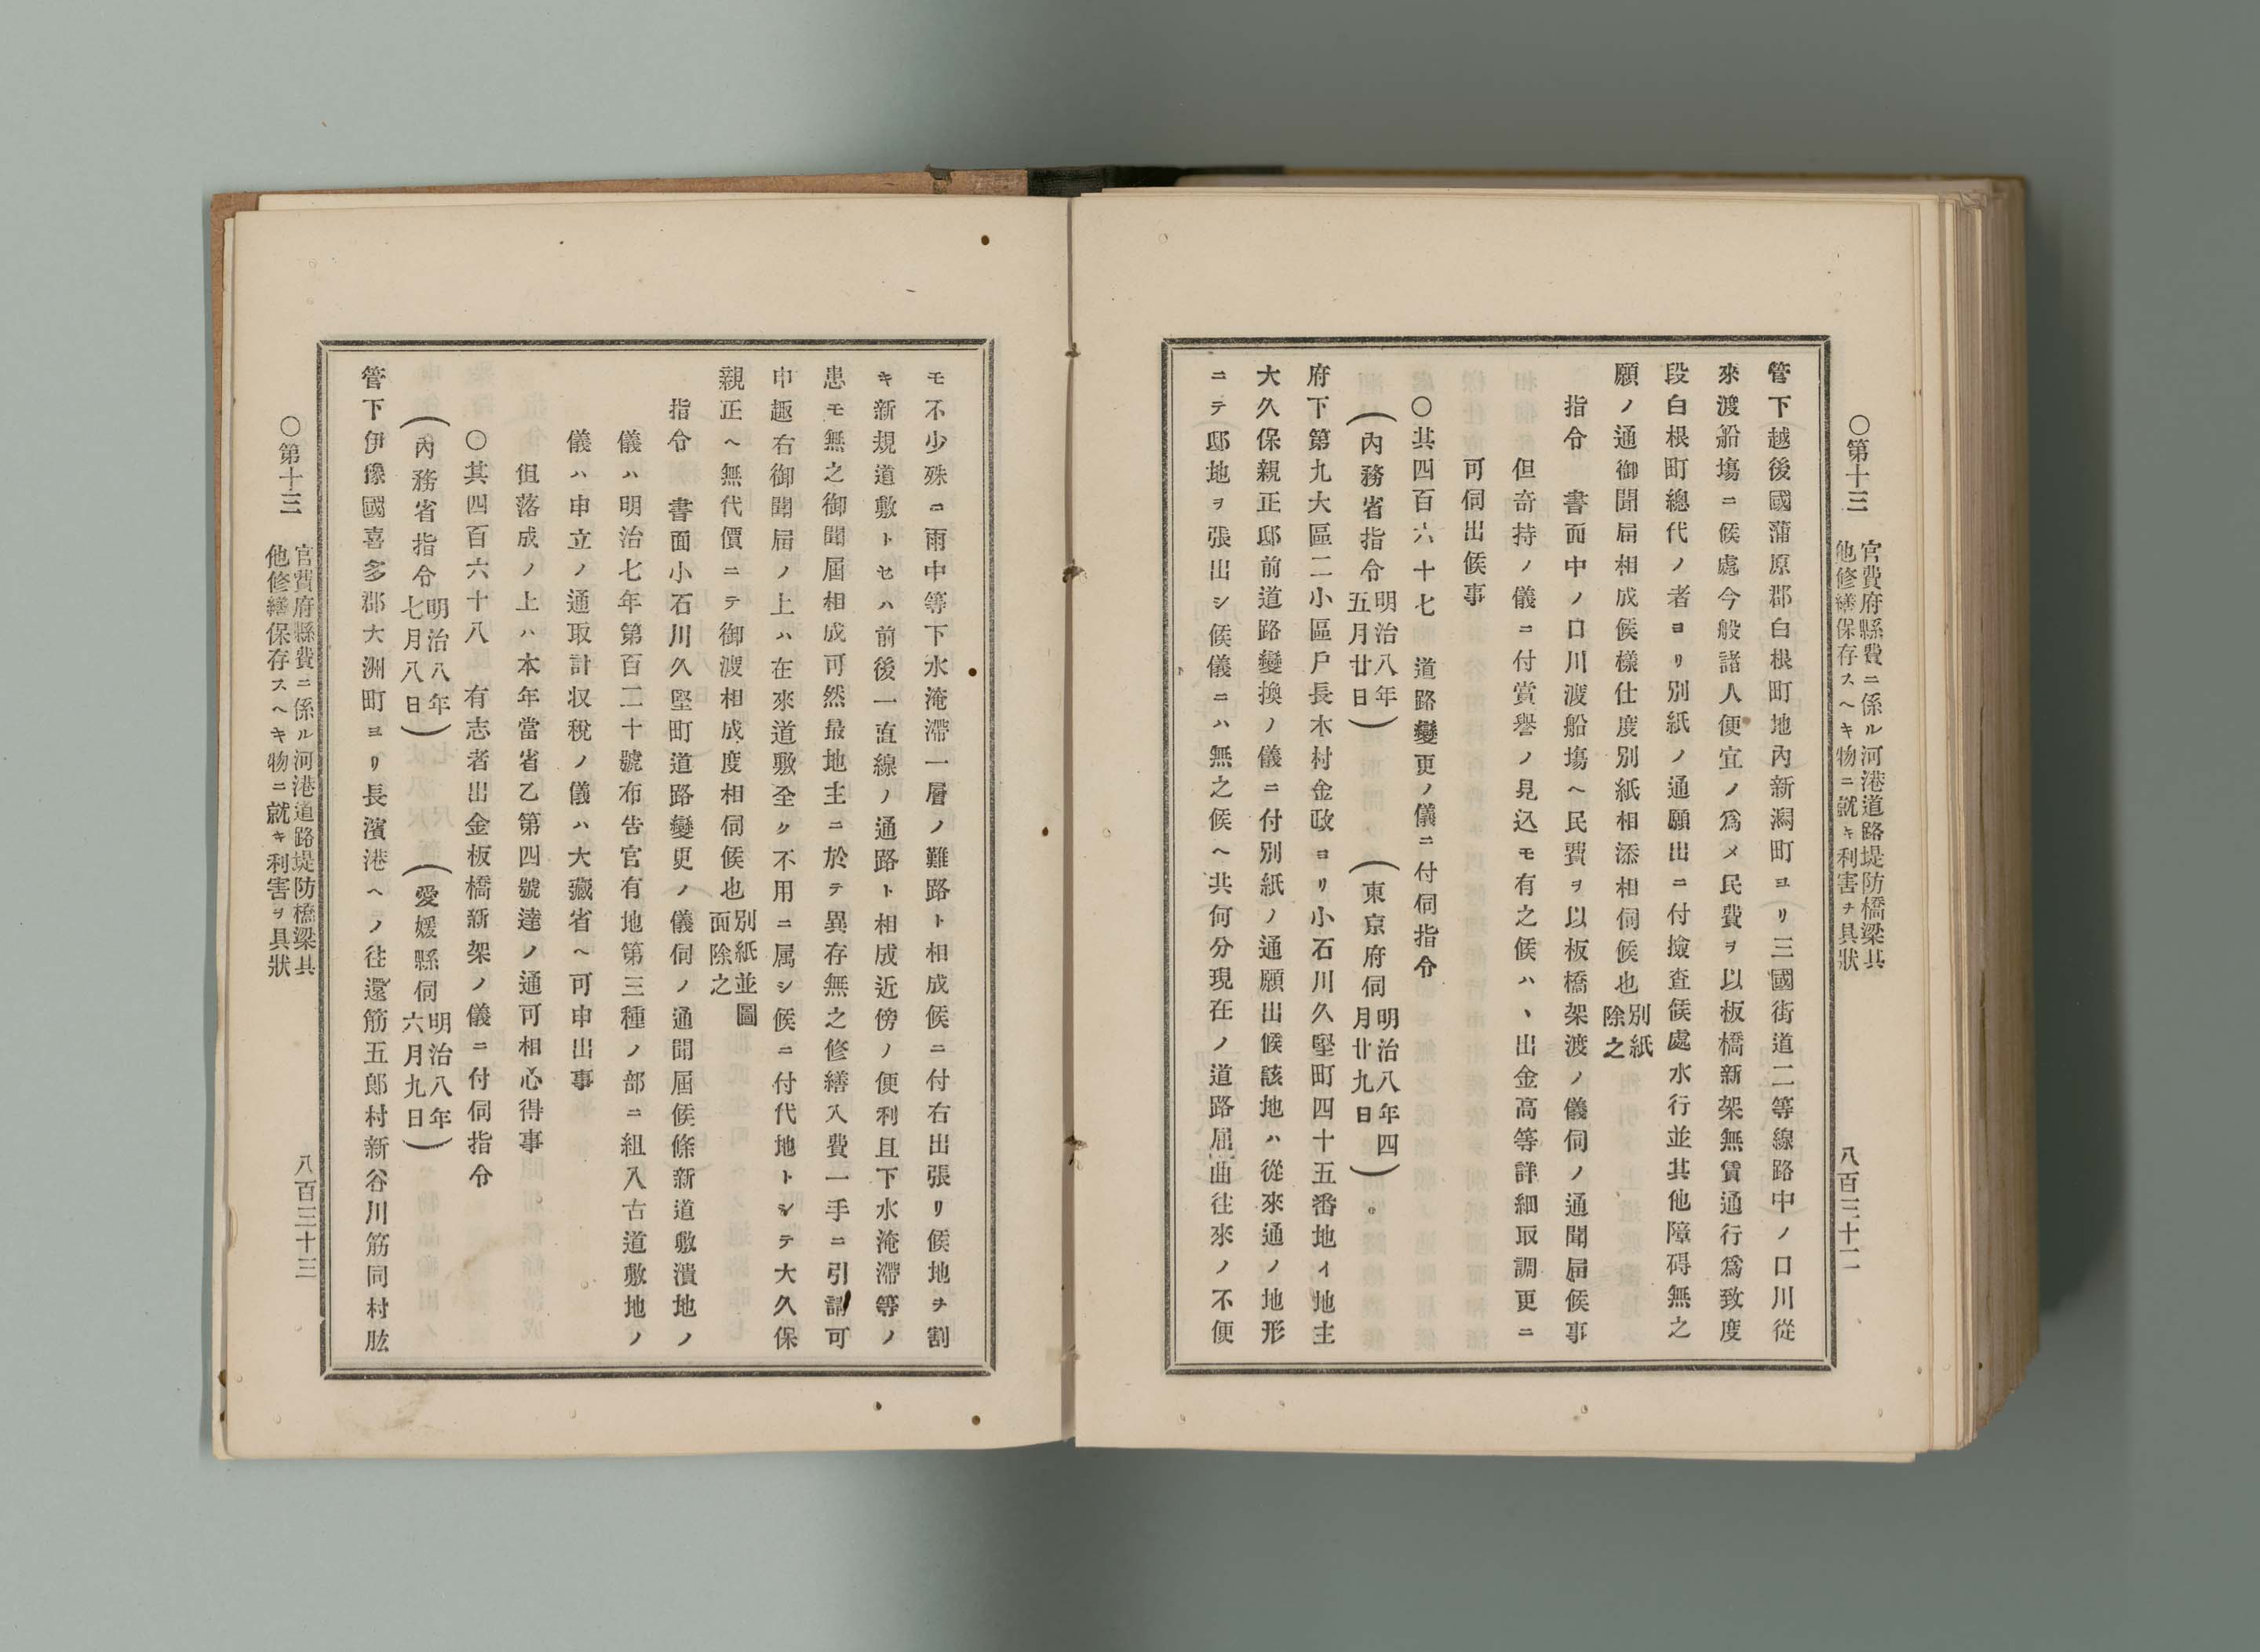 ○第十三
官費府縣費ニ係ル河港道路堤防橋梁其
他修繕保存スヘキ物ニ就キ利害ヲ具狀
八百三十二
管下越後國蒲原郡白根町地內新潟町ヨリ三國街道二等線路中ノ口川從
來渡船塲ニ候處今般諸人便宜ノ爲メ民費ヲ以板橋新架無賃通行爲致度
段白根町總代ノ者ヨリ別紙ノ通願出ニ付撿査候處水行並其他障碍無之
願ノ通御聞届相成候樣仕度別紙相添相伺候也別紙除之
指令　書面中ノ口川渡船塲ヘ民費ヲ以板橋架渡ノ儀伺ノ通聞届候事
但奇持ノ儀ニ付賞譽ノ見込モ有之候ハヽ出金高等詳細取調更ニ
可伺出候事
○其四百六十七　道路變更ノ儀ニ付伺指令
（內務省指令明治八年五月廿日）　（東京府伺明治八年四月廿九日）。
府下第九大區二小區戶長木村金政ヨリ小石川久堅町四十五番地イ地主
大久保親正邸前道路變換ノ儀ニ付別紙ノ通願出候該地ハ從來通ノ地形
ニテ邸地ヲ張出シ候儀ニハ無之候ヘ共何分現在ノ道路屈曲往來ノ不便
モ不少殊ニ雨中等下水淹滯一層ノ難路ト相成候ニ付右出張リ候地ヲ割
キ新規道敷トセハ前後一直線ノ通路ト相成近傍ノ便利且下水淹滯等ノ
患モ無之御聞屆相成可然最地主ニ於テ異存無之修繕入費一手ニ引請可
申趣右御聞届ノ上ハ在來道敷全ク不用ニ属シ候ニ付代地トシテ大久保
親正ヘ無代價ニテ御渡相成度相伺候也別紙並圖面除之
指令　書面小石川久堅町道路變更ノ儀伺ノ通聞屆候條新道敷潰地ノ
儀ハ明治七年第百二十號布告官有地第三種ノ部ニ組入古道敷地ノ
儀ハ申立ノ通取計収稅ノ儀ハ大藏省ヘ可申出事
但落成ノ上ハ本年當省乙第四號達ノ通可相心得事
○其四百六十八　有志者出金板橋新架ノ儀ニ付伺指令
（內務省指令明治八年七月八日）　（愛媛縣伺明治八年六月九日）
管下伊豫國喜多郡大洲町ヨリ長濱港ヘノ往還筋五郎村新谷川筋同村肱
○第十三
官費府縣費ニ係ル河港道路堤防橋梁其
他修繕保存スヘキ物ニ就キ利害ヲ具狀
八百三十三